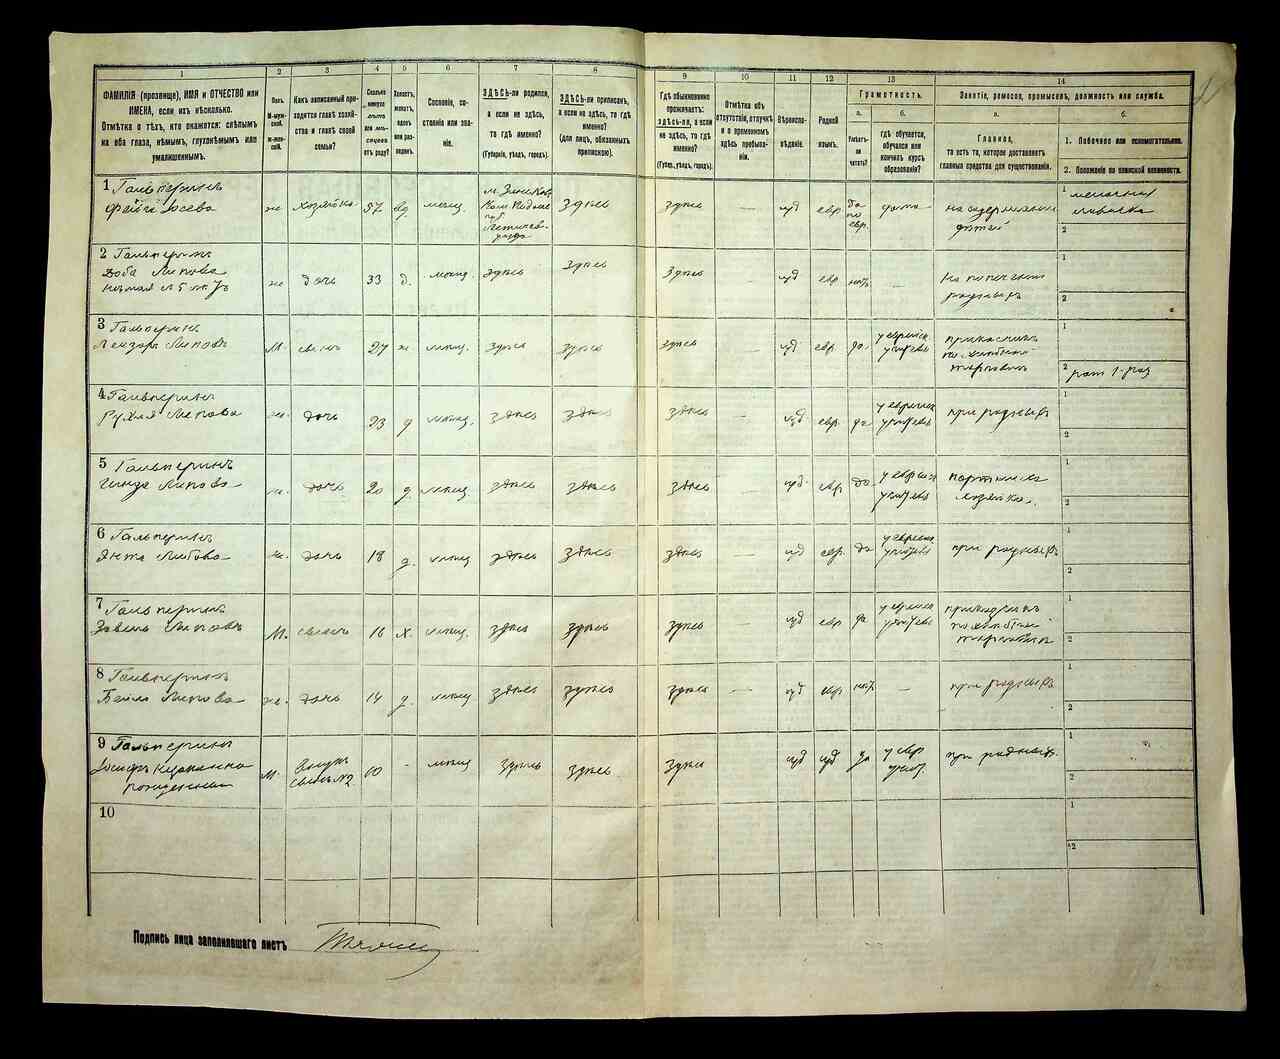 1
2
3
4
5
6
7
8
9
10
11
12
13
14
ФАМИЛІЯ (прозвище), ИМЯ и ОТЧЕСТВО или
ИМЕНА, если ихъ нѣсколько.
Отмѣтка о тѣхъ, кто окажется: слѣпымъ
на оба глаза, нѣмымъ, глухонѣмымъ или
умалишеннымъ.
Полъ.
М-муж-
ской.
Ж-жен-
скій.
Какъ записанный при-
ходится главѣ хозяй-
ства и главѣ своей
семьи?
Сколько
минуло
лѣтъ
или мѣ-
сяцевъ
отъ роду?
Холостъ,
женатъ,
вдовъ
или раз-
веденъ.
Сословіе, со-
стояніе или зва-
ніе.
ЗДѢСЬ-ли родился,
а если не здѣсь,
то гдѣ именно?
(Губернія, уѣздъ, городъ).
ЗДѢСЬ-ли приписанъ,
а если не здѣсь, то гдѣ
именно?
(для лицъ, обязанныхъ
припискою).
Гдѣ обыкновенно
проживаетъ:
здѣсь-ли, а если
не здѣсь, то гдѣ
именно?
(Губер., уѣздъ, городъ).
Отмѣтка объ
отсутствіи, отлучкѣ
и о временномъ
здѣсь пребыва-
ніи.
Вѣроиспо-
вѣданіе.
Родной
языкъ.
Грамотность.
а.
Умѣетъ-
ли
читать?
б.
гдѣ обучается,
обучался или
кончилъ курсъ
образованія?
Занятіе, ремесло, промыселъ, должность или служба.
а.
Главное,
то есть то, которое доставляетъ
главныя средства для существованія.
б.
1. Побочное или вспомогательное.
2. Положеніе по воинской повинности.
1 Гальперинъ
хозяйка 57 вд мѣщ.
здѣсь
здѣсь
іуд евр. да
по
евр.
дома
дѣтей
1
2
2 Гальперинъ
Доба Липова
дочь 33 д. мѣщ. здѣсь здѣсь
здѣсь — іуд евр нѣтъ —
На попеченіи
родныхъ
1
2
3 Гальперинъ
Лейзоръ Липовъ
М. сынъ 27 ж мѣщ. здѣсь здѣсь
здѣсь — іуд евр. да
у еврейск
учителя
прикащикъ
по хлѣбной
торговлѣ
1
2 рат 1-раз
4 Гальперинъ
Рухля Липова
ж. дочь 23 д мѣщ. здѣсь здѣсь
здѣсь — іуд. евр. да
у еврейск
учителя
при родныхъ
1
2
5 Гальперинъ
Липова
ж. дочь 20 д. мѣщ здѣсь здѣсь
здѣсь — іуд. евр да
у еврейск
учителя
1
2
6 Гальперинъ
Липова
ж. дочь 18 д. мѣщ здѣсь здѣсь
здѣсь — іуд евр. да
у еврейск
учителя
при родныхъ
1
2
7 Гальперинъ
Липовъ
М. сынъ 16 х. мѣщ. здѣсь здѣсь
здѣсь — іуд евр да
у еврейск
учителя
прикащикъ
по хлѣбной
торговлѣ
1
2
8 Гальперинъ
Бейла Липова
ж. дочь 14 д. мѣщ здѣсь здѣсь
здѣсь — іуд евр нѣтъ —
при родныхъ
1
2
9 Гальперинъ
М. внукъ
10 - мѣщ здѣсь здѣсь
здѣсь іуд іуд да
у евр
учит.
при родныхъ
1
2
10
1
2
Подпись лица заполнявшаго листъ